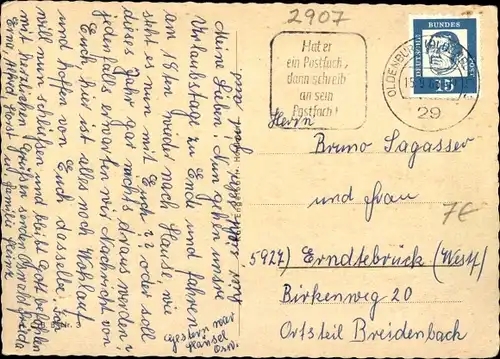 2907
Hat er
ein Postfach,
dann schreib
an sein
Postfach!
DEUTSCHE BUNDESPOST
15
OLDENBURG (OLDB)
29
Herrn
Bruno Sagasser
und Frau
7E
5927) Erndtebrück (Westf)
Birkenweg 20
Ortsteil Breidenbach
Meine Lieben. Nun gehen unsre
Urlaubstage zu Ende und fahren
am 18ten wieder nach Hause, wie
sieht es nun mit Euch? oder soll
dieses Jahr gar nichts draus werden?
jedenfalls erwarten wir Nachricht von
Euch, hier ist alles noch Wohlauf
und hoffen von Euch dasselbe.
will nun schließen und bleibt Gott befohlen
mit herzlichen Grüßen senden
Erna, Alfred Horst u. Familie
gestern war
Hansel